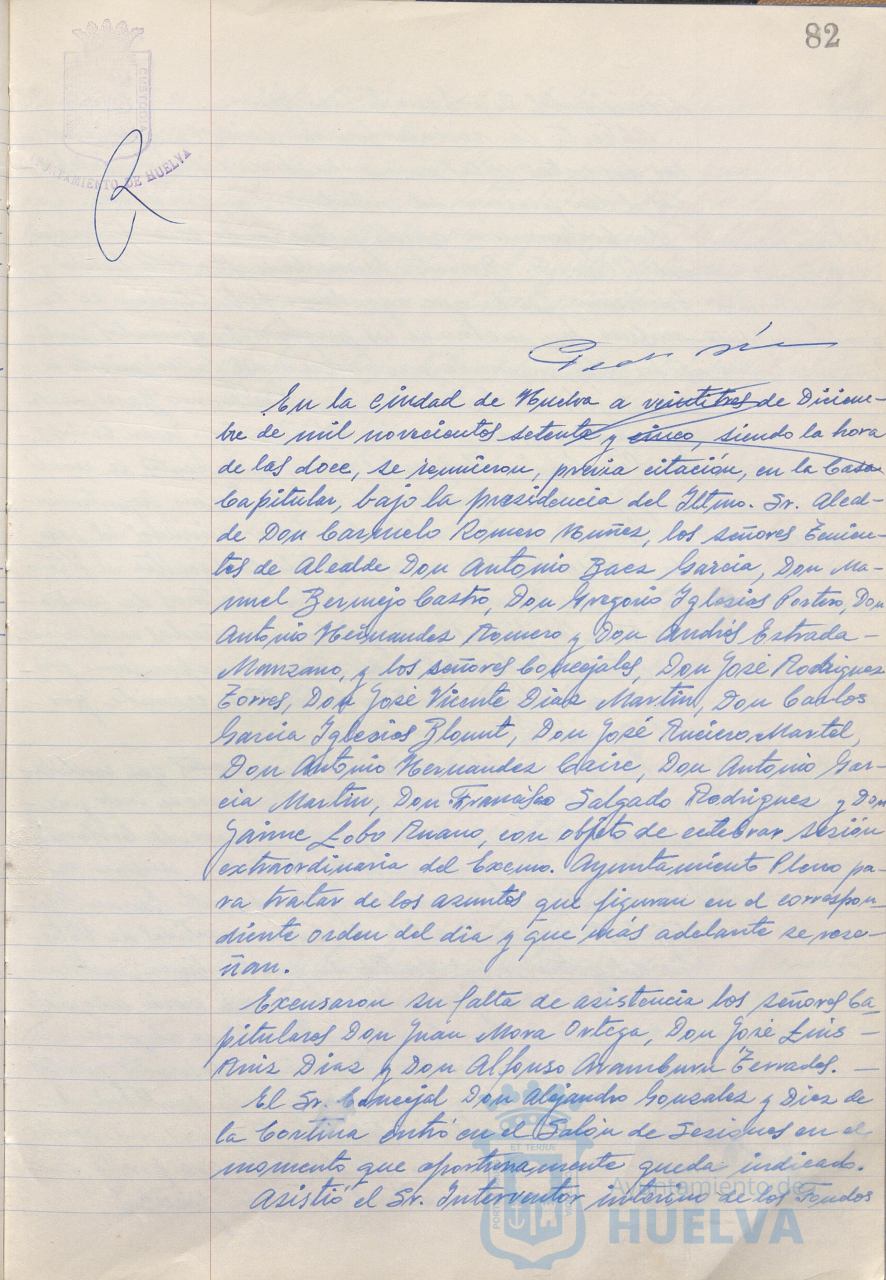 82
CUSTODIA
AYUNTAMIENTO DE HUELVA
En la ciudad de Huelva a veintitres de Diciem-
bre de mil novecientos setenta y cinco, siendo la hora
de las doce, se reunieron, previa citación, en la Casa
Capitular, bajo la presidencia del Iltmo. Sr. Alcal-
de Don Carmelo Romero Nuñez, los señores Tenien-
tes de Alcalde Don Antonio Baez Garcia, Don Ma-
nuel Bermejo Castro, Don Gregorio Iglesias Portero, Don
Antonio Hernandez Romero y Don Andrés Estrada-
Manzano, y los señores Concejales, Don José Rodriguez
Torres, Don José Vicente Diaz Martin, Don Carlos
Garcia Iglesias Blount, Don José Martel,
Don Antonio Hernandez Caire, Don Antonio Gar-
cia Martin, Don Francisco Salgado Rodriguez y Don
Jaime Lobo, con objeto de celebrar sesión
extraordinaria del Excmo. Ayuntamiento Pleno pa-
ra tratar de los asuntos que figuran en el correspon-
diente orden del dia y que más adelante se rese-
ñan.
Excusaron su falta de asistencia los señores Ca-
pitulares Don Juan Mora Ortega, Don José Luis-
Ruiz Diaz y Don Alfonso Aramburu Terrades. -
El Sr. Concejal Don Alejandro Gonzalez y Diez de
la Cortina entró en el Salón de Sesiones en el
momento que oportunamente queda indicado.
Asistió el Sr. Interventor interino de los Fondos
ET TERRAE
Ayuntamiento de
HUELVA